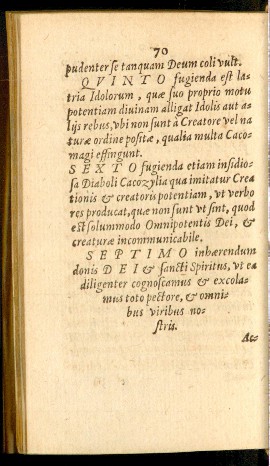 70
pudenter se tanquam Deum coli vult.
QVINTO fugienda est la-
tria Idolorum, quæ suo proprio motu
potentiam diuinam alligat Idolis aut a-
lijs rebus, vbi non sunt à Creatore vel na
turæ ordine positæ, qualia multa Caco-
magi effingunt.
SEXTO fugienda etiam insidio-
sa Diaboli Cacozylia qua imitatur Crea
tionis & creatoris potentiam, vt verbo
res producat, quæ non sunt vt sint, quod
est solummodo Omnipotentis Dei, &
creaturæ incommunicabile.
SEPTIMO inhærendum
donis DEI & sancti Spiritus, vt ea
diligenter cognoscamus & excola-
mus toto pectore, & omni-
bus viribus no-
stris.
Ac-